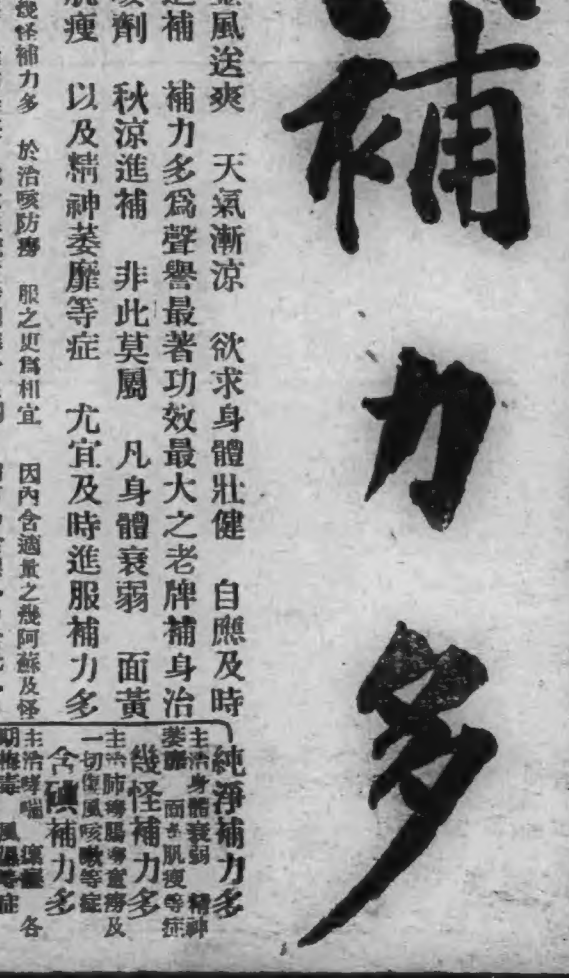 補力多
金風送爽　天氣漸涼　欲求身體壯健　自應及時
進補　補力多為聲譽最著功效最大之老牌補身治
咳劑　秋涼進補　非此莫屬　凡身體衰弱　面黃
肌瘦　以及精神萎靡等症　尤宜及時進服補力多
幾怪補力多　於治咳防癆　服之更爲相宜　因內含適量之幾阿蘇及怪
純淨補力多
主治身體衰弱　精神
萎靡　面黃肌瘦等症
幾怪補力多
主治肺癆腸癆童癆及
一切傷風咳嗽等症
含碘補力多
主治哮喘　瘰癧　各
期梅毒　風濕等症